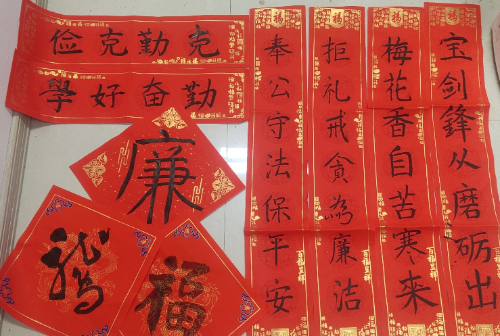 克勤克俭
勤奋好學
宝剑鋒从磨砺出
梅花香自苦寒来
拒礼戒贪為廉洁
奉公守法保平安
廉
福
福
福
福
福